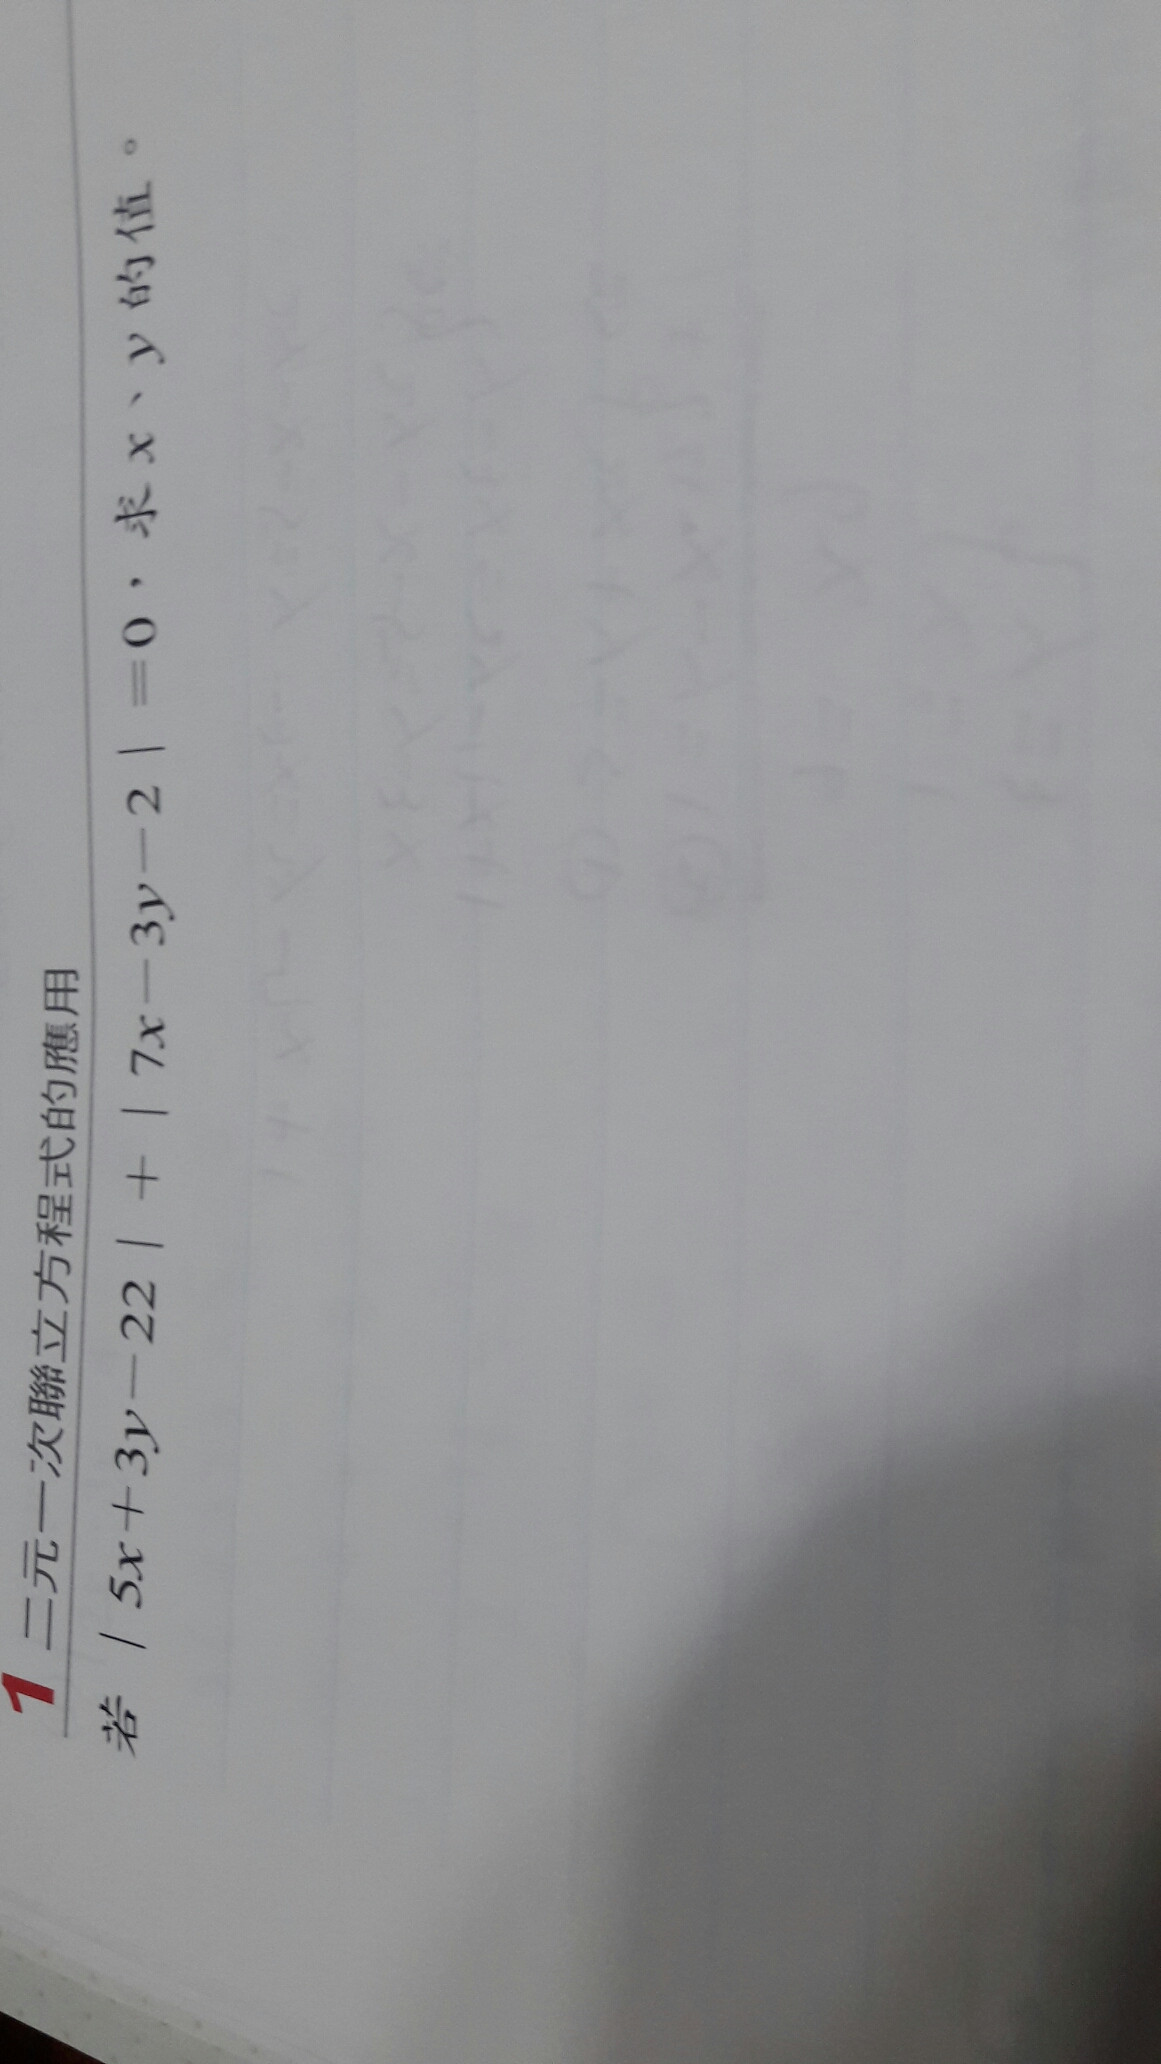 1 二元一次聯立方程式的應用
若 | 5x+3y-22 | + | 7x-3y-2 | =0，求 x、y 的值。